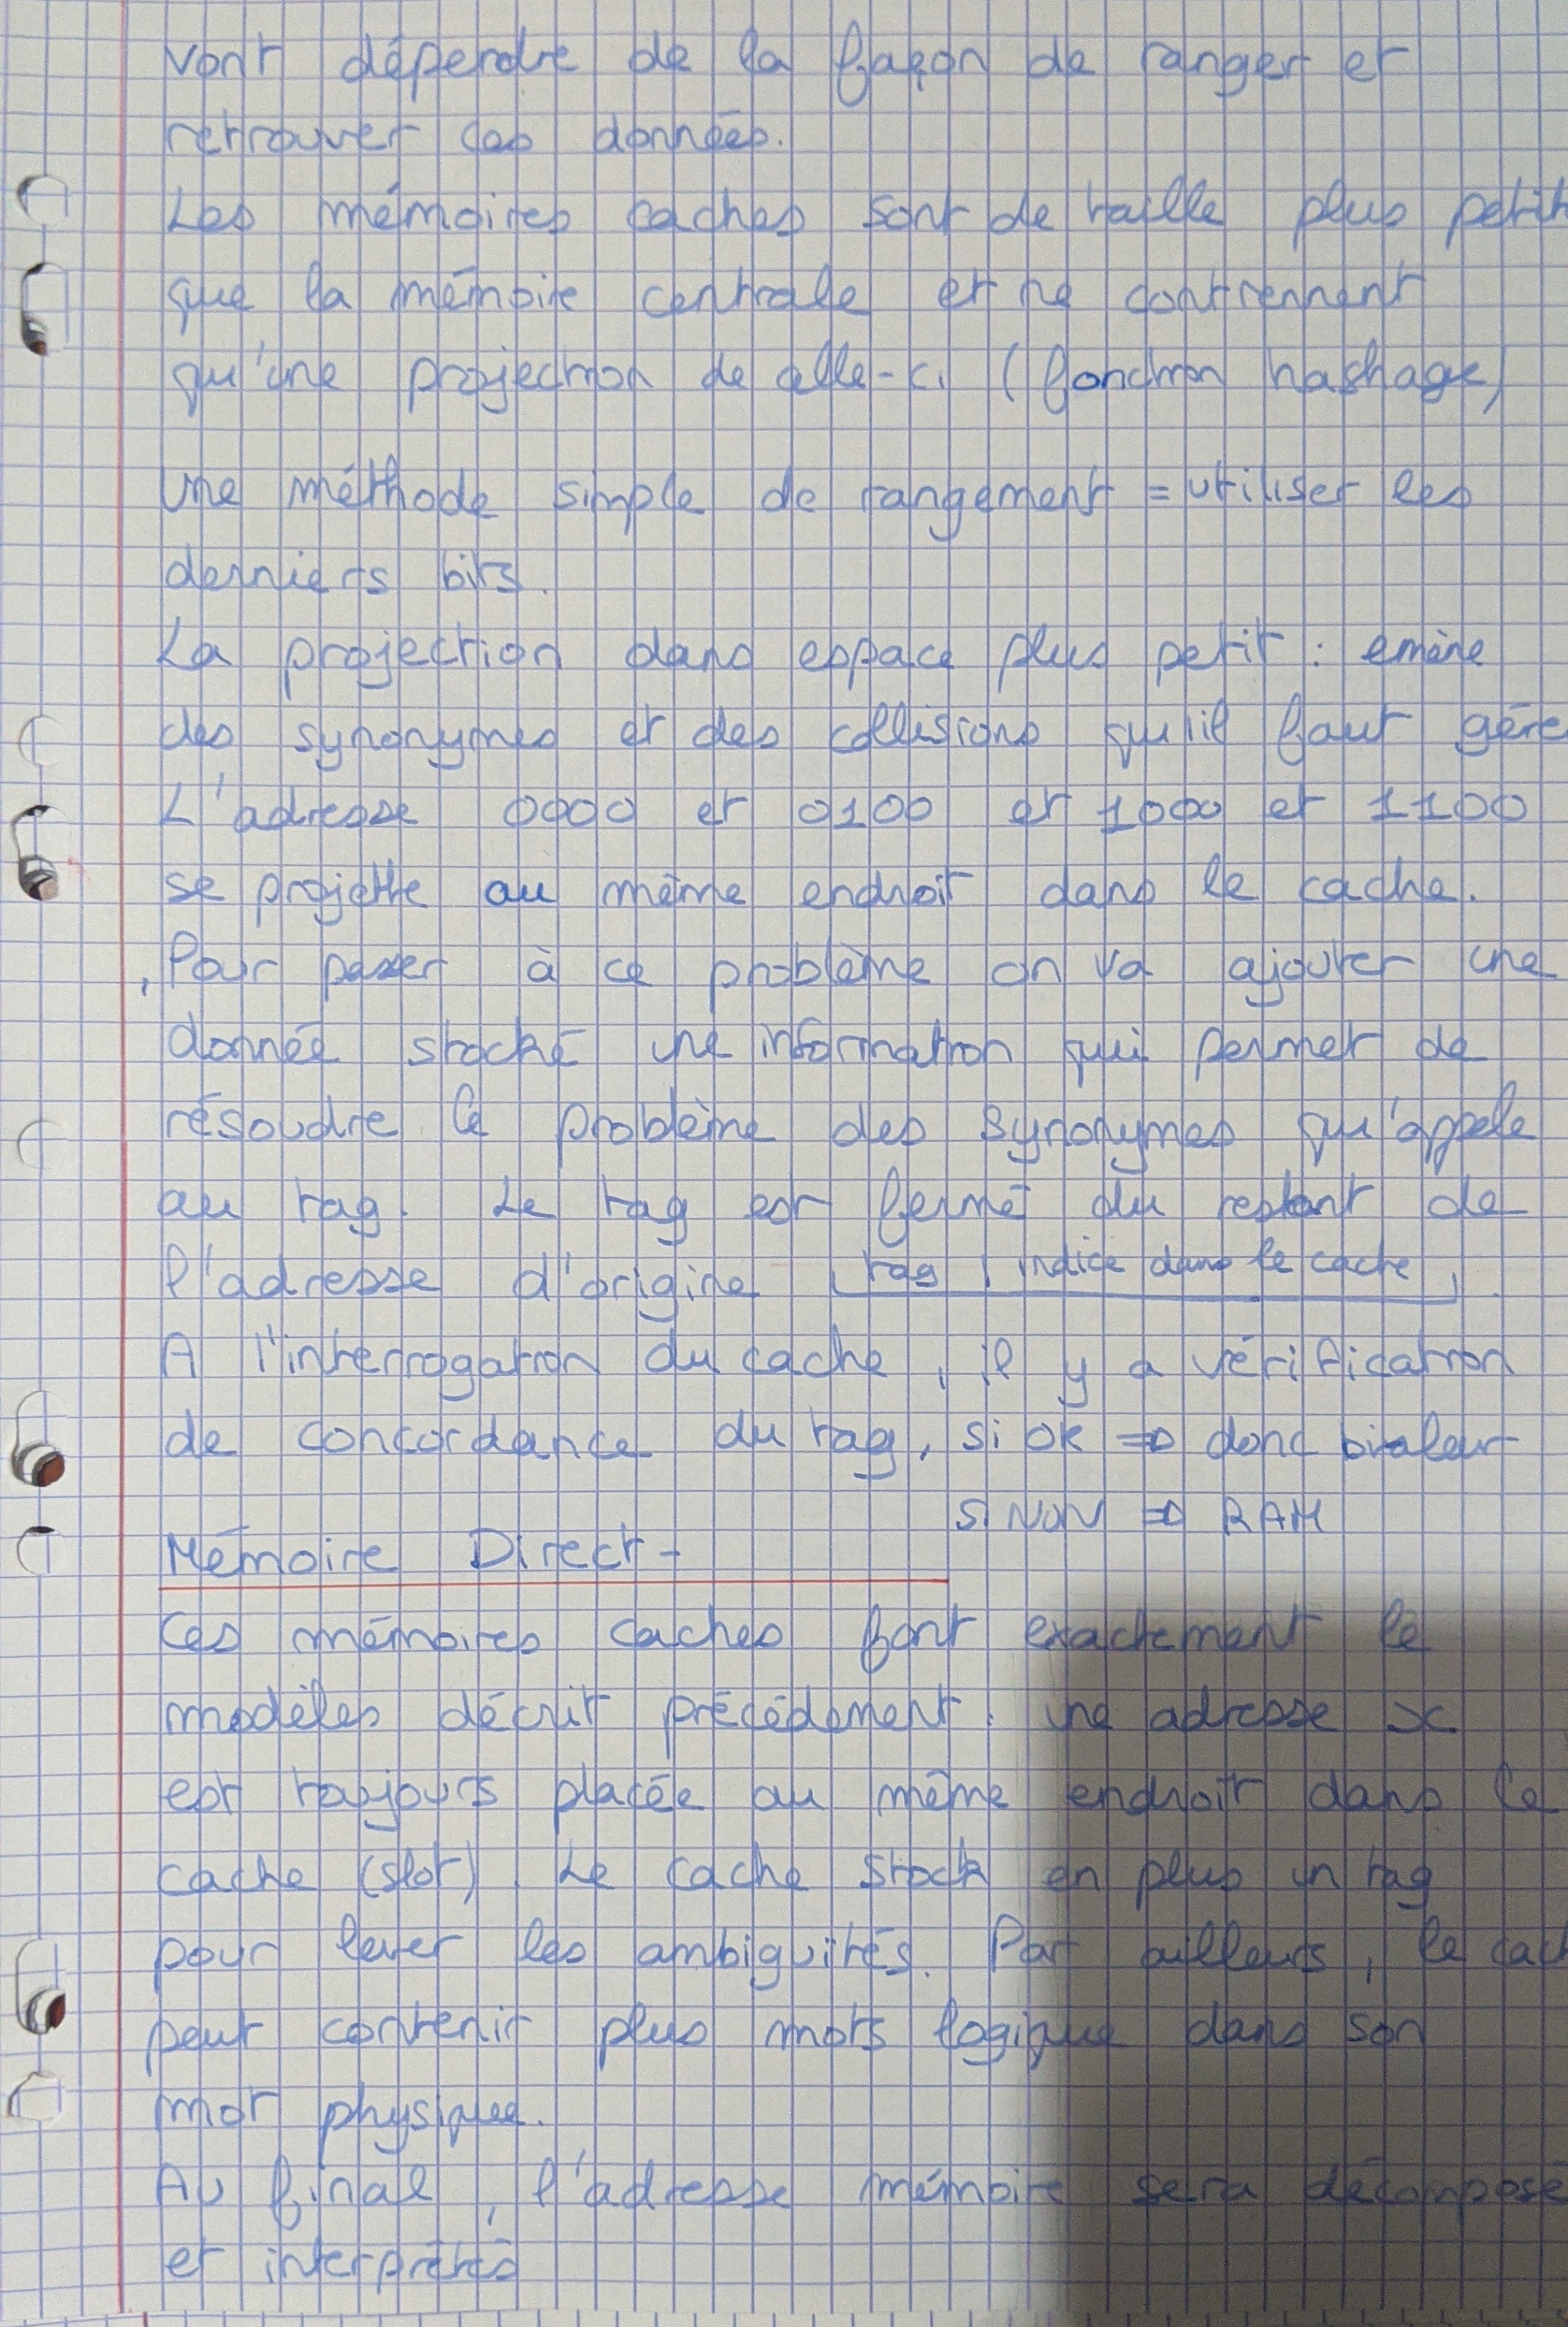 vont dépendre de la façon de ranger et
retrouver ces données.
Les mémoires caches sont de taille plus petit
que la mémoire centrale et ne contiennent
qu'une projection de celle-ci (fonction hashage)
Une méthode simple de rangement = utiliser les
derniers bits.
La projection dans espace plus petit : emène
des synonymes et des collisions qu'il faut gére
L'adresse 0000 et 0100 et 1000 et 1100
se projette au même endroit dans le cache.
Pour passer à ce problème on va ajouter une
donnée stocké une information qui permet de
résoudre le problème des synonymes qu'appele
au tag. Le tag est fermé du restant de
l'adresse d'origine tag | indice dans le cache
A l'interrogation du cache, il y a vérification
de concordance du tag, si OK => donc
SiNON => RAM
Mémoire Direct -
Ces mémoires caches font exactement le
modèles décrit précédement : une adresse x
est toujours placée au même endroit dans le
cache (slot). Le cache stock en plus un tag
pour lever les ambiguités. Par ailleurs, le cach
peut contenir plus mots logique dans son
mot physique.
Au final, l'adresse mémoire sera décomposé
et interprétés